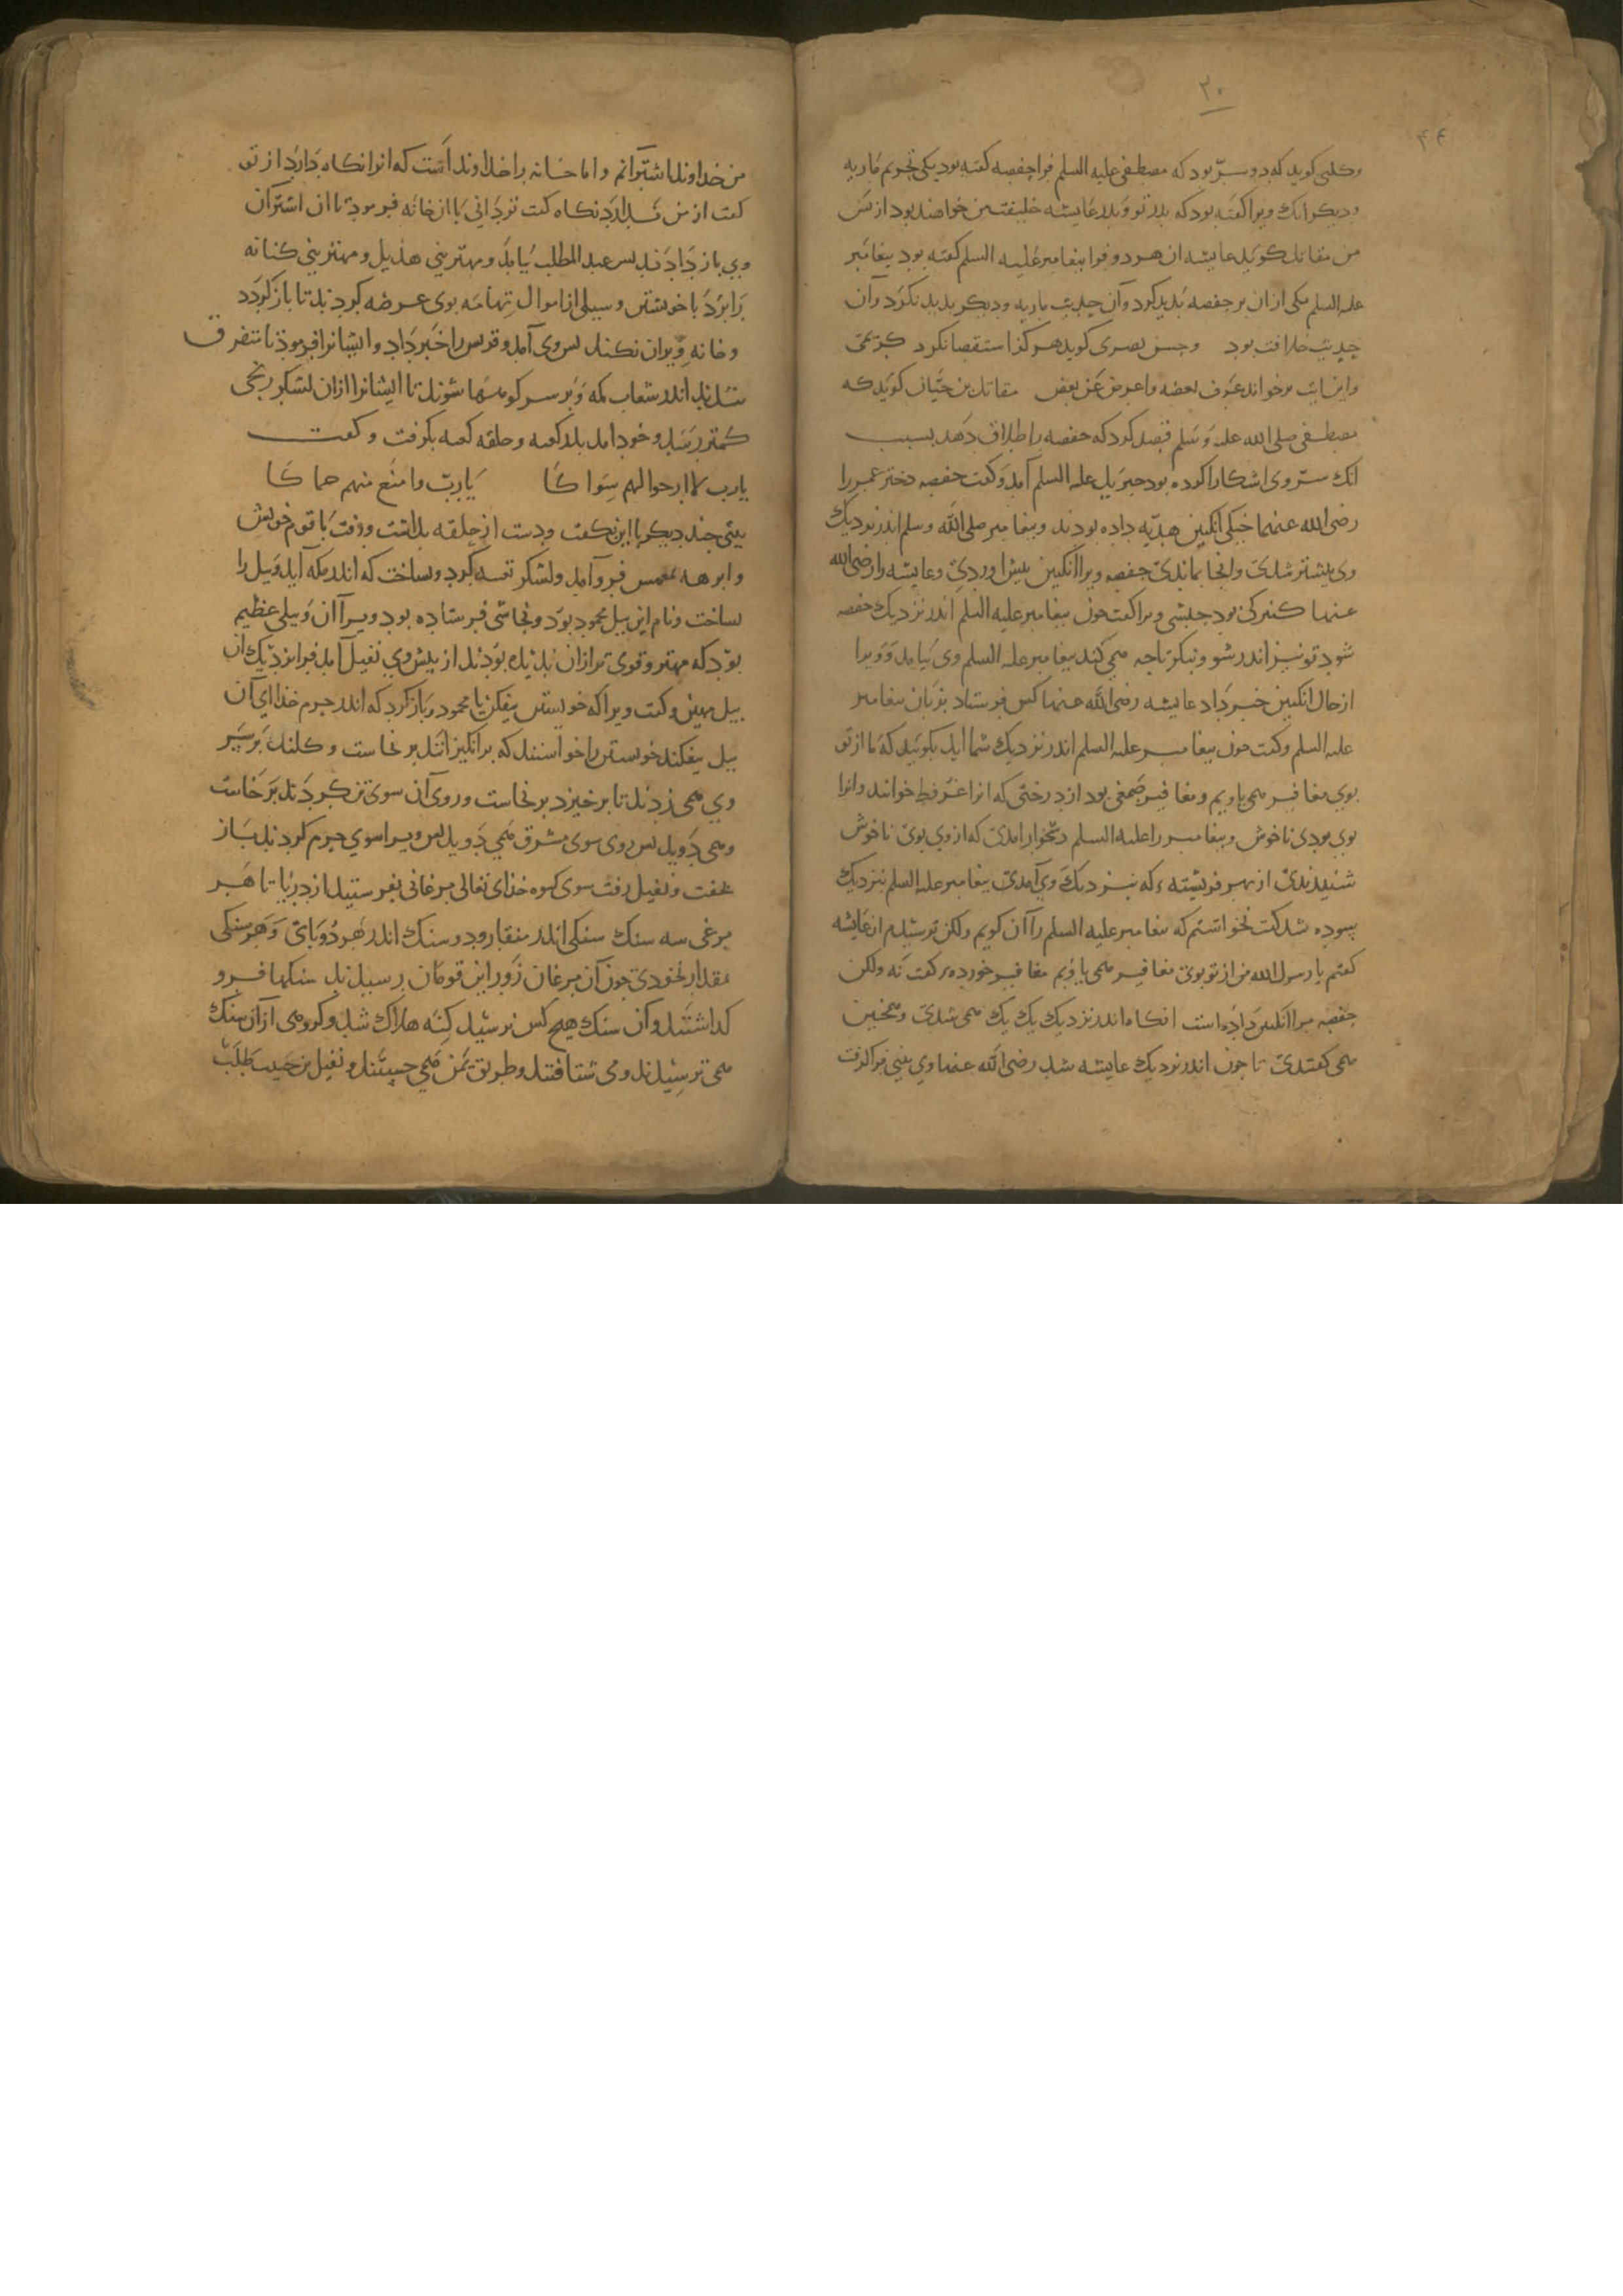 ۳۰
۴۴
وکلبی کوید که دو سرّ بود که مصطفی علیه السلم فرا حفصه کفته بود یکی تحریم ماریه
ودیکر آنک ویرا کفته بود که بدر تو وبدر عایشه خلیفتین خواهند بود از بس
من مقاتل کوید عایشه ان هر دو فرا بیغامبر علیه السلم کفته بود بیغامبر
علیه السلم یکی ازان بر حفصه بدید کرد وآن حدیث ماریه ودیکر بدید نکرد وآن
حدیث خلافت بود وحسن بصری کوید هرکز استقصا نکرد کریمی
واین ایت برخواند عرف بعضه واعرض عن بعض مقاتل بن حیان کوید که
مصطفی صلی الله علیه وسلم قصد کرد که حفصه را طلاق دهد بسبب
آنک سرّ وی اشکارا کرده بود جبریل علیه السلم آمد وکفت حفصه دختر عمر را
رضی الله عنهما خیکی انکبین هدیه داده بودند وبیغامبر صلی الله وسلم اندر نزدیک
وی بیشتر شدی وانجا بماندی حفصه ویرا انکبین بیش اوردی وعایشه را رضی الله
عنها کنیزکی بود حبشی ویرا کفت جون بیغامبر علیه السلم اندر نزدیک حفصه
شود تو نیز اندر شو وبنکر تا جه همی کند بیغامبر علیه السلم وی بیامد وویرا
از حال انکبین خبر داد عایشه رضی الله عنها کس فرستاد بزنان بیغامبر
علیه السلم وکفت جون بیغامبر علیه السلم اندر نزدیک شما اید بکویید که ما از تو
بوی مغافیر همی یاویم ومغافیر صمغی بود از درختی که انرا عرفط خوانند وانرا
بوی بودی ناخوش وبیغامبر را علیه السلم دشخوار امدی که از وی بوی ناخوش
شنیدندی از بهر فریشته که بنزدیک وی آمدی بیغامبر علیه السلم بنزدیک
سوده شد کفت نخواستم که بیغامبر علیه السلم را آن کویم ولکن ترسیدم از عایشه
کفتم یا رسول الله من از تو بوی مغافیر همی یاویم مغافیر خورده کفت نه ولکن
حفصه مرا انکبین داده است انکاه اندر نزدیک یک یک همی شدی وهمجنین
همی کفتندی تا جون اندر نزدیک عایشه شد رضی الله عنها وی بینی فرا کرفت
من خداوند اشترانم واما خانه را خداوند است که انرا نکاه دارد از تو
کفت از من ندارد نکاه کفت تو دانی با ان خانه فرمود تا ان اشتران
وی باز دادند بس عبد المطلب بیامد ومهتر بنی هذیل ومهتر بنی کنانه
را ببرد با خویشتن وسیلی از اموال تهامه بوی عرضه کردند تا باز کردد
وخانه ویران نکند بس وی آمد وقریش را خبر داد وایشانرا فرمود تا متفرق
شدند اندر شعاب مکه وبر سر کوهها شوند تا ایشانرا ازان لشکر رنجی
کمتر رسد وخود امد بدر کعبه وحلقه کعبه بکرفت وکفت
یا رب لا ارجو لهم سواکا یا رب وامنع منهم حماکا
بیتی جند دیکر با این بکفت ودست از حلقه بداشت ورفت با قوم خویش
وابرهه بمغمس فرو آمد ولشکر تعبیه کرد وبساخت که اندر مکه آید وبیل را
بساخت ونام این بیل محمود بود ونجاشی فرستاده بود ویرا آن وبیلی عظیم
بود که مهتر وقوی تر ازان ندیده بودند از بیش وی نفیل آمد فرا نزدیک ان
بیل مهین وکفت ویرا که خویشتن بیفکن یا محمود وباز کرد که اندر حرم خدای آن
بیل بیفکند خویشتن را خواستند که برانکیزانند برنخاست وکلند بر سر
وی همی زدند تا برخیزد برنخاست وروی آن سوی تن کردند برخاست
وهمی دوید بس روی سوی مشرق همی دوید بس ویرا سوی حرم کردند باز
بخفت ونفیل رفت سوی کوه خدای تعالی مرغانی بفرستید از دریا با هر
مرغی سه سنک سنکی اندر منقار ودو سنک اندر هر دو بای وهر سنکی
بمقدار نخودی جون آن مرغان زور این قومان رسیدند سنکها فرو
کذاشتند وآن سنک هیج کس نرسید کنه هلاک شد وکروهی ازآن سنک
همی ترسیدند ومی شتافتند وطریق یمن همی جستند ونفیل بن حبیب طلب